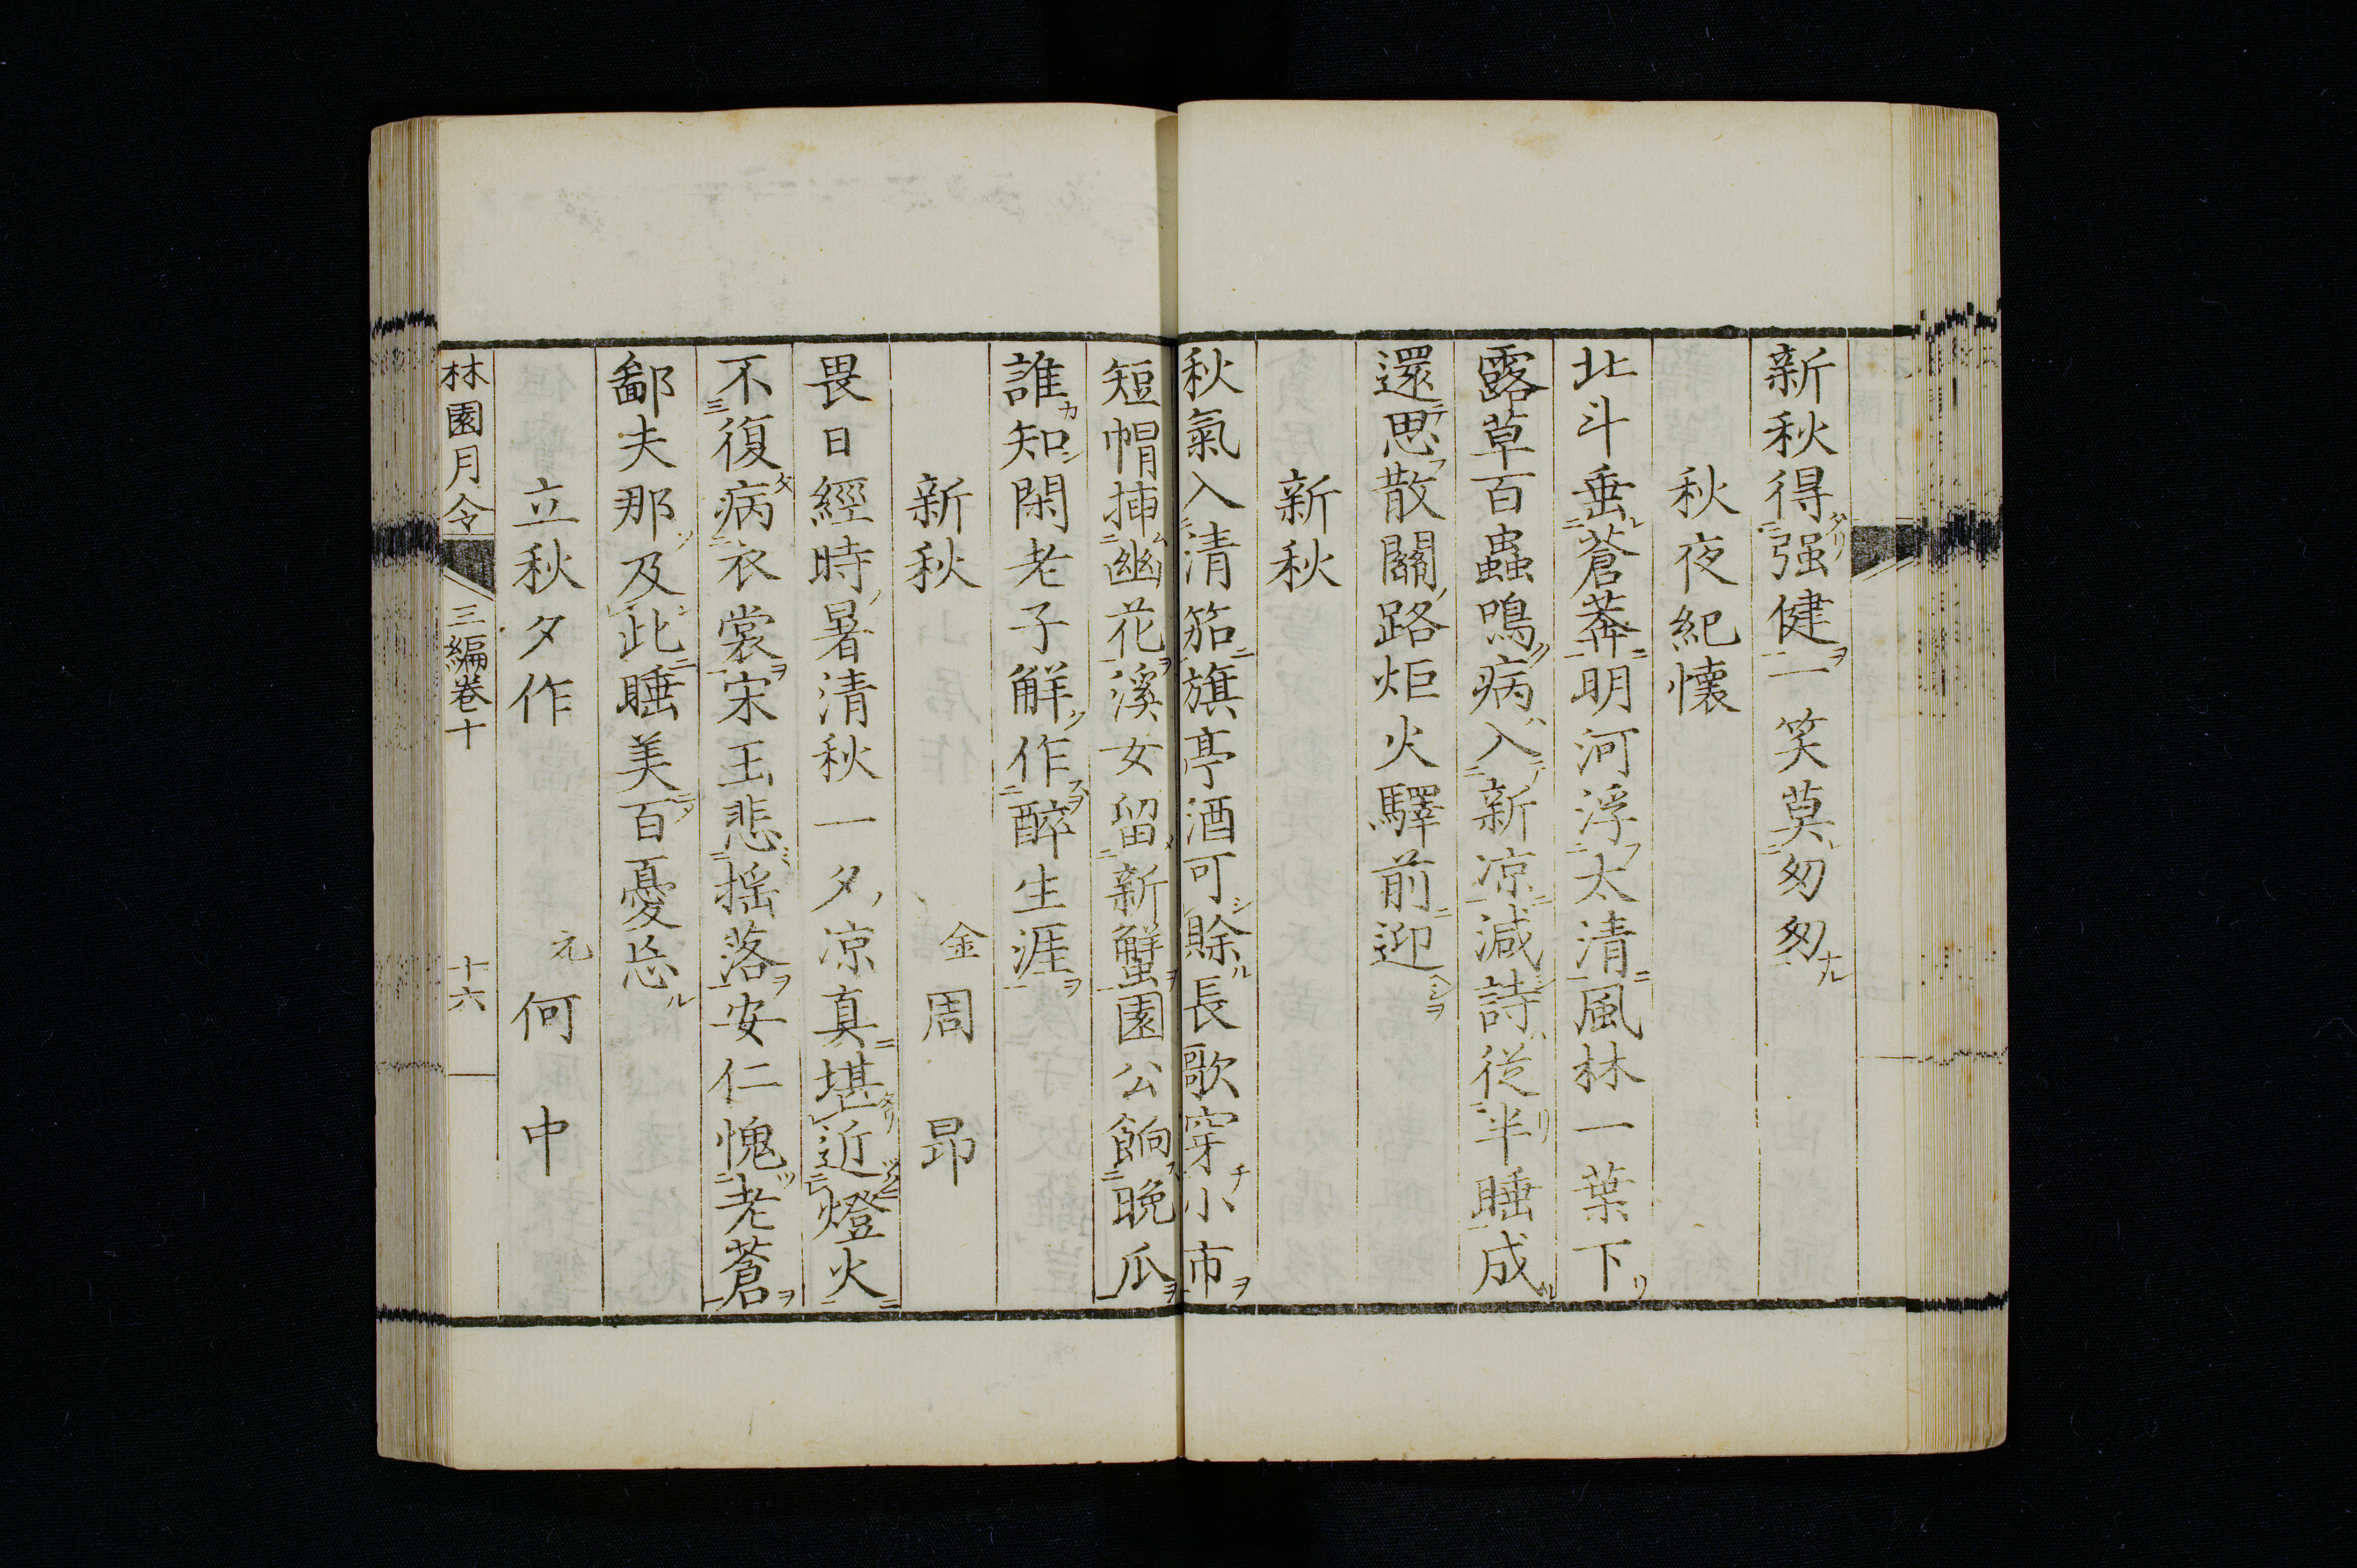 新秋得强健一笑莫匆匆
秋夜紀懷
北斗垂蒼莽明河浮太清風林一葉下
露草百蟲鳴病入新凉減詩從半睡成
還思散關路炬火驛前迎
新秋
秋氣入清笳旗亭酒可賖長歌穿小市
短帽挿幽花溪女留新蟹園公餉晚瓜
誰知閑老子解作醉生涯
新秋 金 周 昂
畏日經時暑清秋一夕凉真堪近燈火
不復病衣裳宋玉悲揺落安仁愧老蒼
鄙夫那及此睡美百憂忘
立秋夕作 元 何 中
林園月令 三編卷十 十六